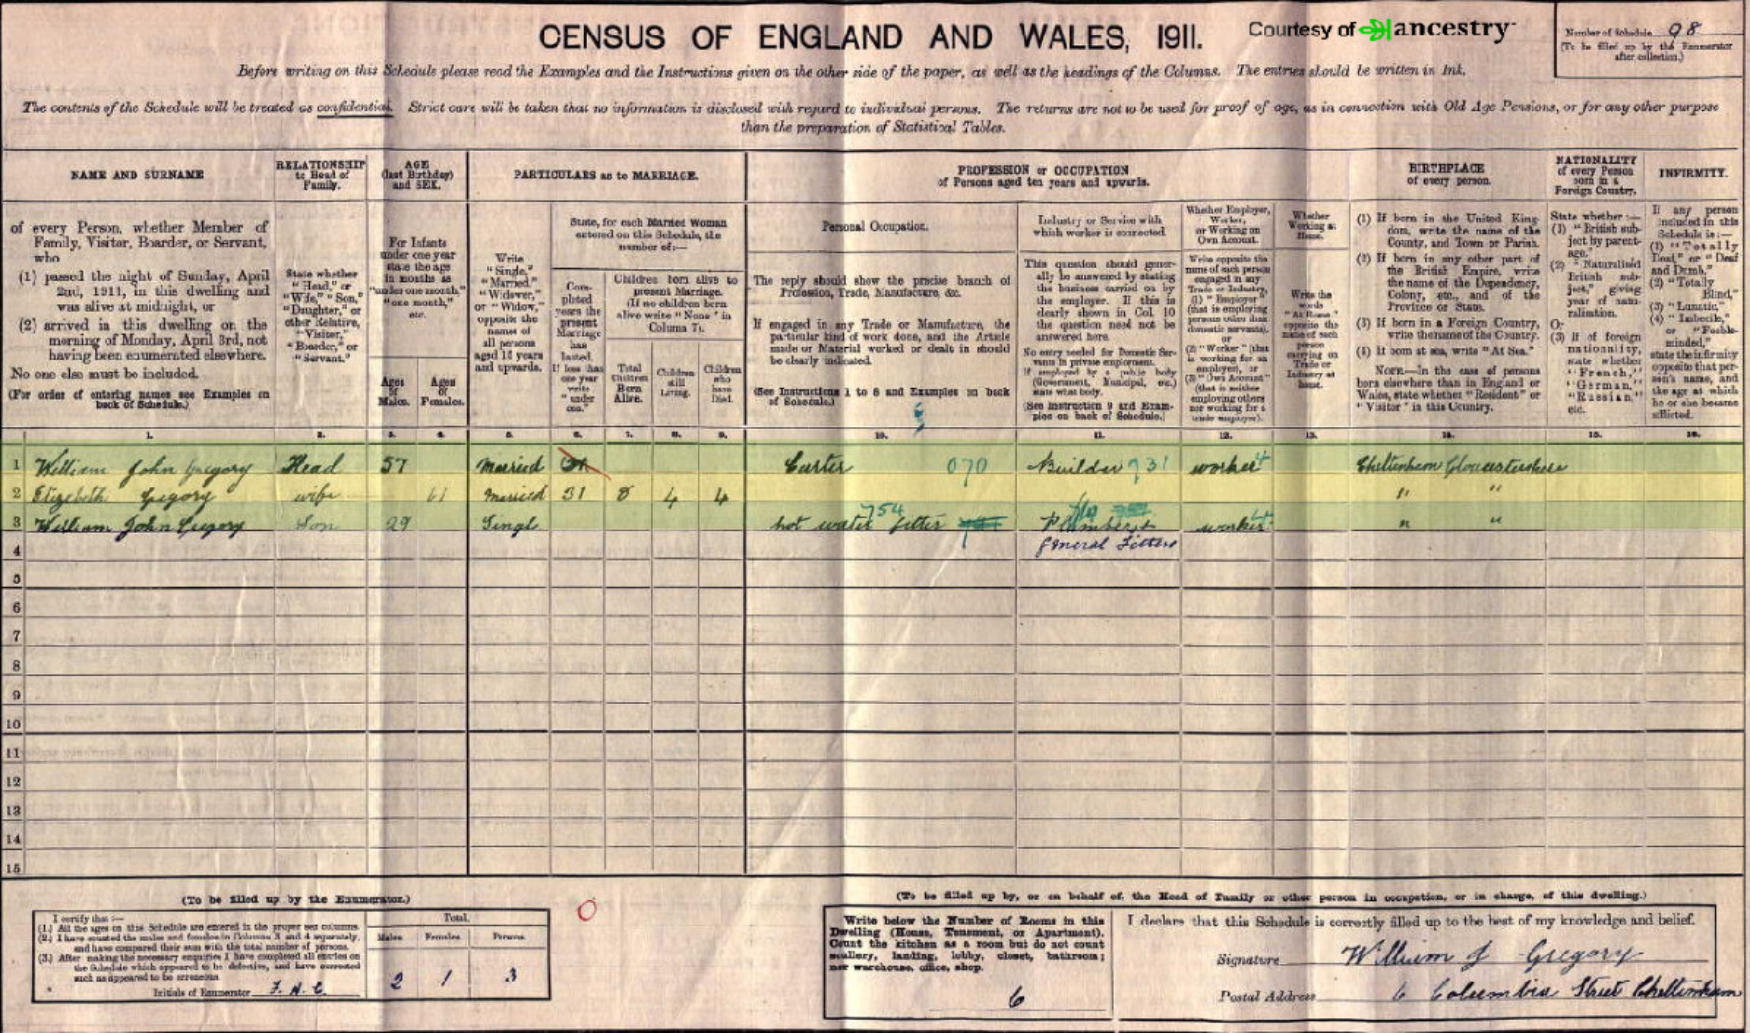 CENSUS OF ENGLAND AND WALES, 1911.
Courtesy of ancestry
Number of Schedule 98
(To be filled up by the Enumerator after collection.)
Before writing on this Schedule please read the Examples and the Instructions given on the other side of the paper, as well as the headings of the Columns. The entries should be written in Ink.
The contents of the Schedule will be treated as confidential. Strict care will be taken that no information is disclosed with regard to individual persons. The returns are not to be used for proof of age, as in connection with Old Age Pensions, or for any other purpose
than the preparation of Statistical Tables.
NAME AND SURNAME
RELATIONSHIP to Head of Family.
AGE (last Birthday) and SEX.
PARTICULARS as to MARRIAGE.
PROFESSION or OCCUPATION
of Persons aged ten years and upwards.
BIRTHPLACE of every person.
NATIONALITY of every Person born in a Foreign Country.
INFIRMITY.
of every Person, whether Member of
Family, Visitor, Boarder, or Servant,
who
(1) passed the night of Sunday, April
2nd, 1911, in this dwelling and
was alive at midnight, or
(2) arrived in this dwelling on the
morning of Monday, April 3rd, not
having been enumerated elsewhere.
No one else must be included.
(For order of entering names see Examples on
back of Schedule.)
State whether
"Head," or
"Wife," "Son,"
"Daughter," or
other Relative,
"Visitor,"
"Boarder," or
"Servant."
For Infants
under one year
state the age
in months as
"under one month,"
"one month,"
etc.
Ages of Males.
Ages of Females.
Write
"Single,"
"Married,"
"Widower,"
or "Widow,"
opposite the
names of
all persons
aged 15 years
and upwards.
State, for each Married Woman
entered on this Schedule, the
number of:—
Completed years the present Marriage has lasted.
If less than one year write "under one."
Children born alive to
present Marriage.
(If no children born
alive write "None" in
Column 7).
Total Children Born Alive.
Children still Living.
Children who have Died.
Personal Occupation.
The reply should show the precise branch of
Profession, Trade, Manufacture, &c.
If engaged in any Trade or Manufacture, the
particular kind of work done, and the Article
made or Material worked or dealt in should
be clearly indicated.
(See Instructions 1 to 8 and Examples on back
of Schedule.)
Industry or Service with
which worker is connected.
This question should generally be answered by stating
the business carried on by
the employer. If this is
clearly shown in Col. 10
the question need not be
answered here.
No entry needed for Domestic Servants in private employment.
If employed by a public body
(Government, Municipal, etc.)
state what body.
(See Instruction 9 and Examples on back of Schedule.)
Whether Employer, Worker, or Working on Own Account.
Write opposite the
name of each person
engaged in any
Trade or Industry,
(1) "Employer"
(that is employing
persons other than
domestic servants),
or
(2) "Worker" (that
is working for an
employer), or
(3) "Own Account"
(that is neither
employing others
nor working for a
trade employer).
Whether Working at Home.
Write the
words
"At Home"
opposite the
name of each
person
carrying on
Trade or
Industry at
home.
(1) If born in the United Kingdom, write the name of the
County, and Town or Parish.
(2) If born in any other part of
the British Empire, write
the name of the Dependency,
Colony, etc., and of the
Province or State.
(3) If born in a Foreign Country,
write the name of the Country.
(4) If born at sea, write "At Sea."
NOTE.—In the case of persons
born elsewhere than in England or
Wales, state whether "Resident" or
"Visitor" in this Country.
State whether :—
(1) "British subject by parentage,"
(2) "Naturalised British subject," giving
year of naturalisation.
Or
(3) If of foreign
nationality,
state whether
"French,"
"German,"
"Russian,"
etc.
If any person
included in this
Schedule is:—
(1) "Totally
Deaf," or "Deaf
and Dumb,"
(2) "Totally
Blind,"
(3) "Lunatic,"
(4) "Imbecile,"
or "Feeble-minded,"
state the infirmity
opposite that person's name, and
the age at which
he or she became
afflicted.
1. 2. 3. 4. 5. 6. 7. 8. 9. 10. 11. 12. 13. 14. 15. 16.
1 William John Gregory Head 57 Married 31 Carter 070 Builder 731 worker Cheltenham Gloucestershire
2 Elizabeth Gregory wife 61 Married 31 8 4 4 " "
3 William John Gregory Son 29 Singl hot water fitter 754 Plumbers worker " "
4 General Fitters
5
6
7
8
9
10
11
12
13
14
15
(To be filled up by the Enumerator.)
I certify that :—
(1.) All the ages on this Schedule are entered in the proper sex columns.
(2.) I have counted the males and females in Columns 3 and 4 separately,
and have compared their sum with the total number of persons.
(3.) After making the necessary enquiries I have completed all entries on
the Schedule which appeared to be defective, and have corrected
such as appeared to be erroneous.
Initials of Enumerator F. H. C.
Total.
Males Females Persons
2 1 3
0
(To be filled up by, or on behalf of, the Head of Family or other person in occupation, or in charge, of this dwelling.)
Write below the Number of Rooms in this
Dwelling (House, Tenement, or Apartment).
Count the kitchen as a room but do not count
scullery, landing, lobby, closet, bathroom;
nor warehouse, office, shop.
6
I declare that this Schedule is correctly filled up to the best of my knowledge and belief.
Signature William J Gregory
Postal Address 6 Columbia Street Cheltenham